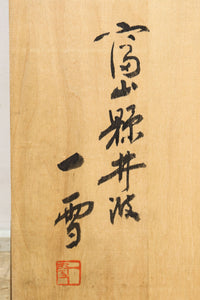 富山縣井波
一雪